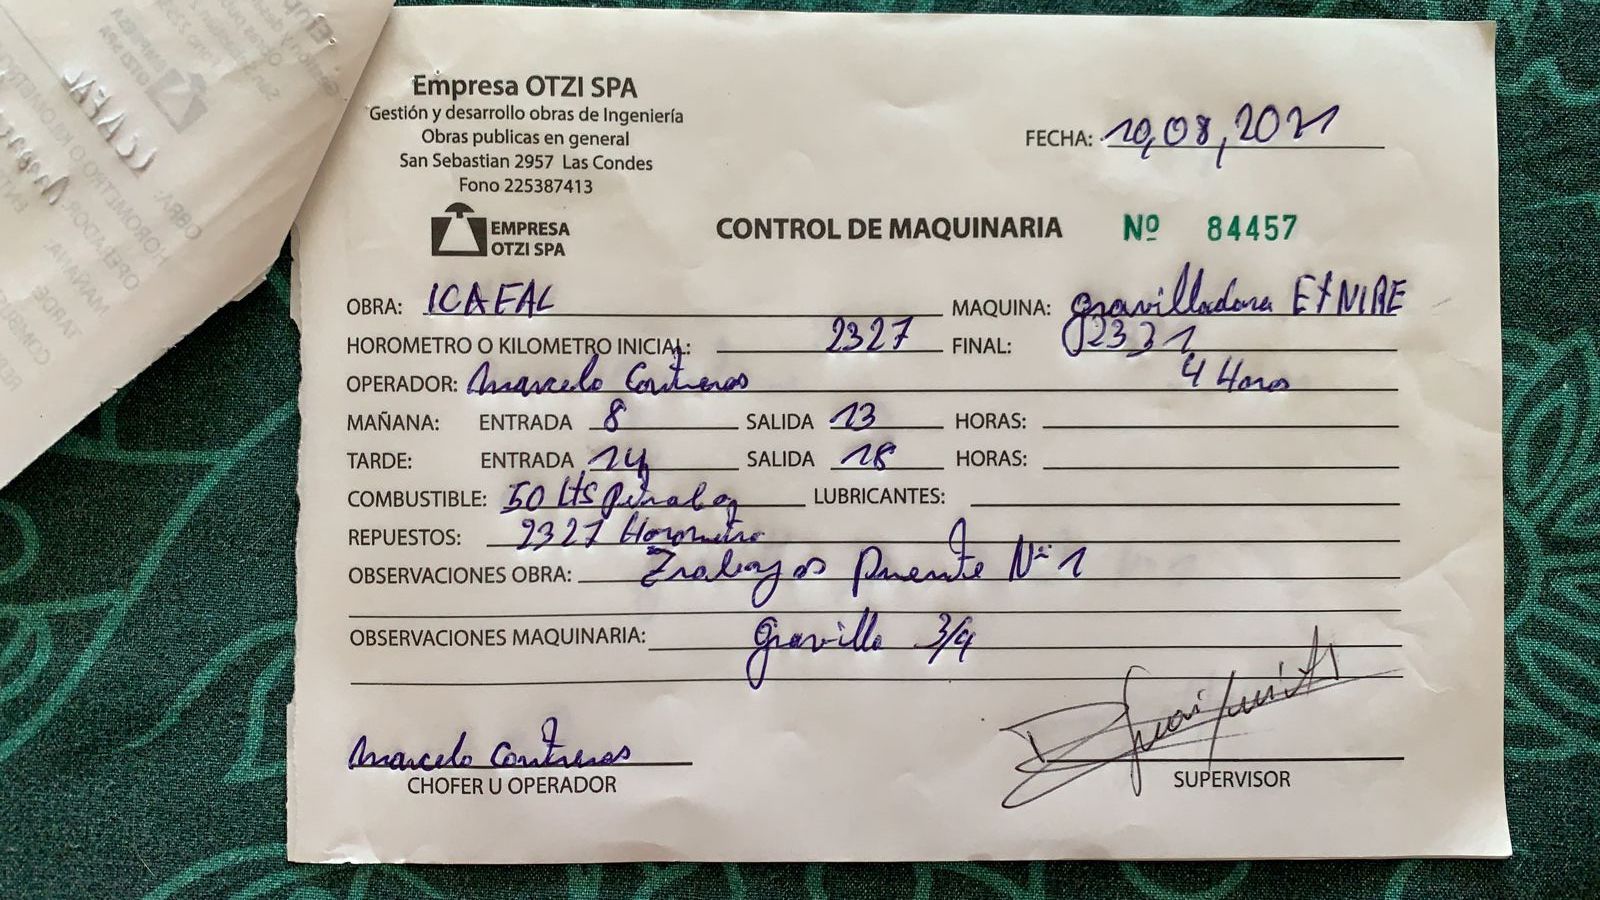 Empresa OTZI SPA
Gestión y desarrollo obras de Ingeniería
Obras publicas en general
San Sebastian 2957 Las Condes
Fono 225387413
FECHA: 10,08,2021
EMPRESA
OTZI SPA
CONTROL DE MAQUINARIA Nº 84457
OBRA: ICAFAL MAQUINA: gravilladora ETNIRE
HOROMETRO O KILOMETRO INICIAL: 2327 FINAL: 2331
OPERADOR: Marcelo Contreras 4 Horas
MAÑANA: ENTRADA 8 SALIDA 13 HORAS:
TARDE: ENTRADA 14 SALIDA 18 HORAS:
COMBUSTIBLE: 50 Lts LUBRICANTES:
REPUESTOS: 2327 Horometro
OBSERVACIONES OBRA: Trabajos Puente Nº 1
OBSERVACIONES MAQUINARIA: gravilla 3/4
Marcelo Contreras
CHOFER U OPERADOR
SUPERVISOR